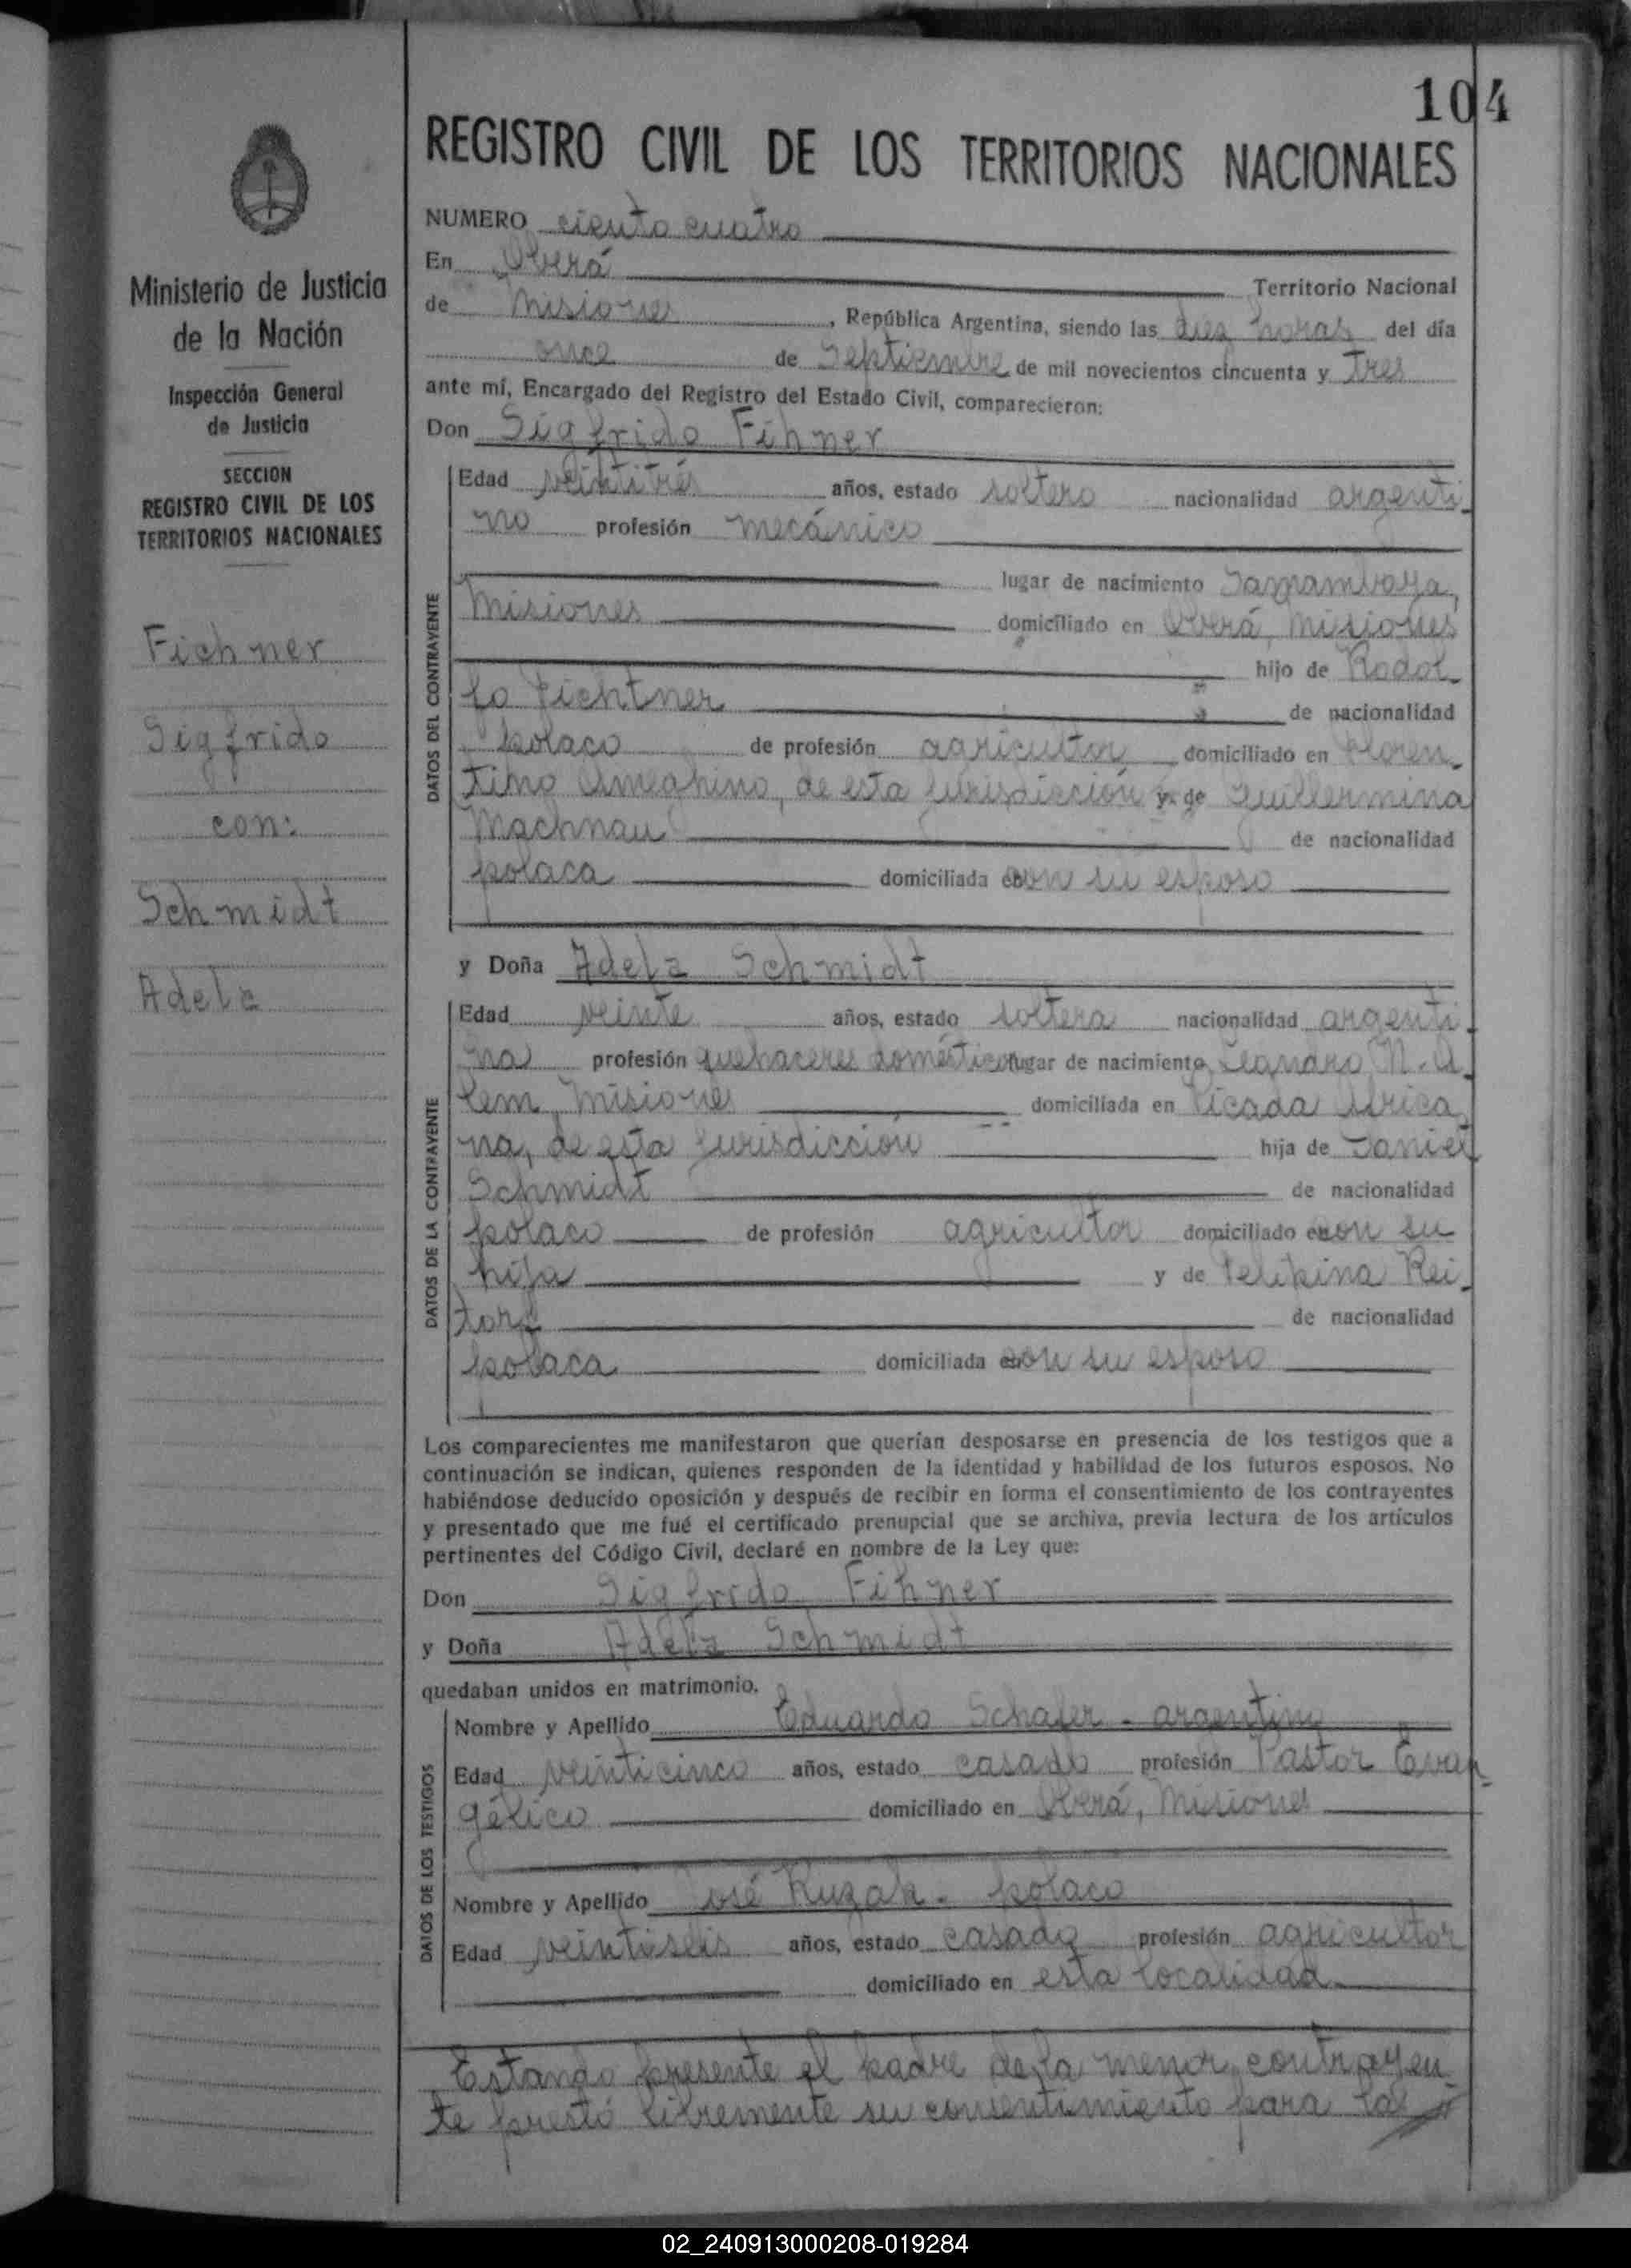 104
REGISTRO CIVIL DE LOS TERRITORIOS NACIONALES
Ministerio de Justicia
de la Nación
Inspección General
de Justicia
SECCION
REGISTRO CIVIL DE LOS
TERRITORIOS NACIONALES
Fichner
Sigfrido
con:
Schmidt
Adela
NUMERO ciento cuatro
En Oberá Territorio Nacional
de Misiones, República Argentina, siendo las diez horas del día
once de Septiembre de mil novecientos cincuenta y tres
ante mí, Encargado del Registro del Estado Civil, comparecieron:
Don Sigfrido Fihner
DATOS DEL CONTRAYENTE
Edad veintitrés años, estado soltero nacionalidad argenti-
no profesión mecánico
lugar de nacimiento
Misiones domiciliado en Oberá, Misiones
hijo de Rodol-
fo Fichtner de nacionalidad
polaco de profesión agricultor domiciliado en Floren-
tino Ameghino, de esta jurisdicción y de Guillermina
Machnau de nacionalidad
polaca domiciliada con su esposo
y Doña Adela Schmidt
DATOS DE LA CONTRAYENTE
Edad veinte años, estado soltera nacionalidad argenti-
na profesión quehaceres domésticos lugar de nacimiento Leandro N. A-
lem, Misiones domiciliada en Picada Africa-
na, de esta jurisdicción hija de Daniel
Schmidt de nacionalidad
polaco de profesión agricultor domiciliado con su
hija y de Rei-
de nacionalidad
polaca domiciliada con su esposo
Los comparecientes me manifestaron que querían desposarse en presencia de los testigos que a
continuación se indican, quienes responden de la identidad y habilidad de los futuros esposos. No
habiéndose deducido oposición y después de recibir en forma el consentimiento de los contrayentes
y presentado que me fué el certificado prenupcial que se archiva, previa lectura de los artículos
pertinentes del Código Civil, declaré en nombre de la Ley que:
Don Sigfrido Fihner
y Doña Adela Schmidt
quedaban unidos en matrimonio.
DATOS DE LOS TESTIGOS
Nombre y Apellido Eduardo Schafer - argentino
Edad veinticinco años, estado casado profesión Pastor Evan-
gélico domiciliado en Oberá, Misiones
Nombre y Apellido José Kuzak - polaco
Edad veintiseis años, estado casado profesión agricultor
domiciliado en esta localidad
Estando presente el padre de la menor contrayen-
te prestó libremente su consentimiento para la
02_240913000208-019284